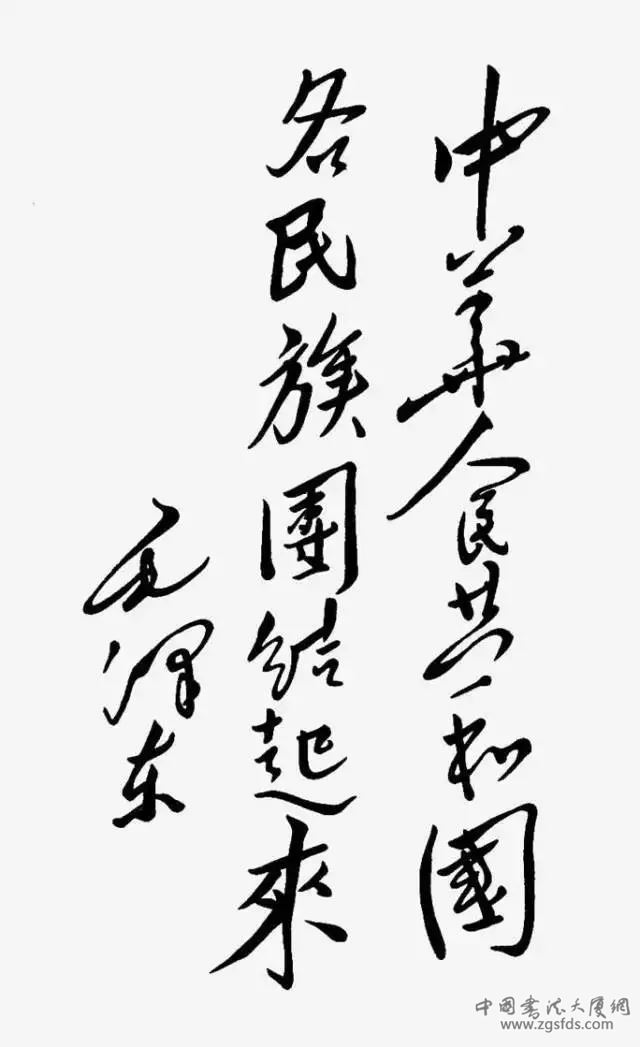 中華人民共和國
各民族團結起來
毛泽东
中国书法大厦網
www.zgsfds.com